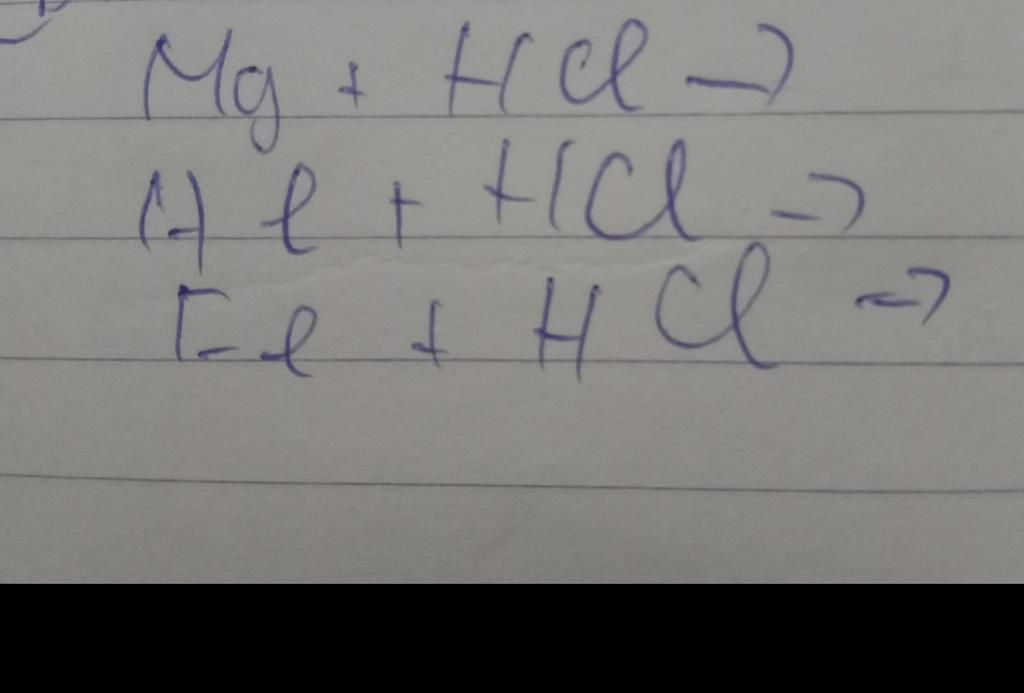 Mg + HCl →
Al + HCl →
Fe + HCl →